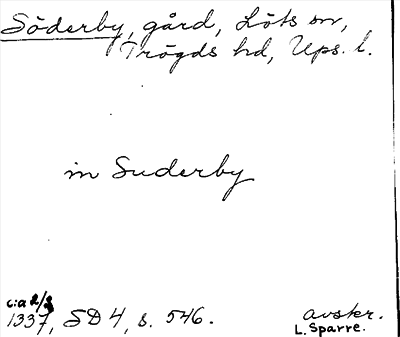 Söderby, gård, Löts sn,
Trögds hd, Ups. l.
in Suderby
c:a 2/2
1337, SD 4, s. 546.
avskr.
L. Sparre.